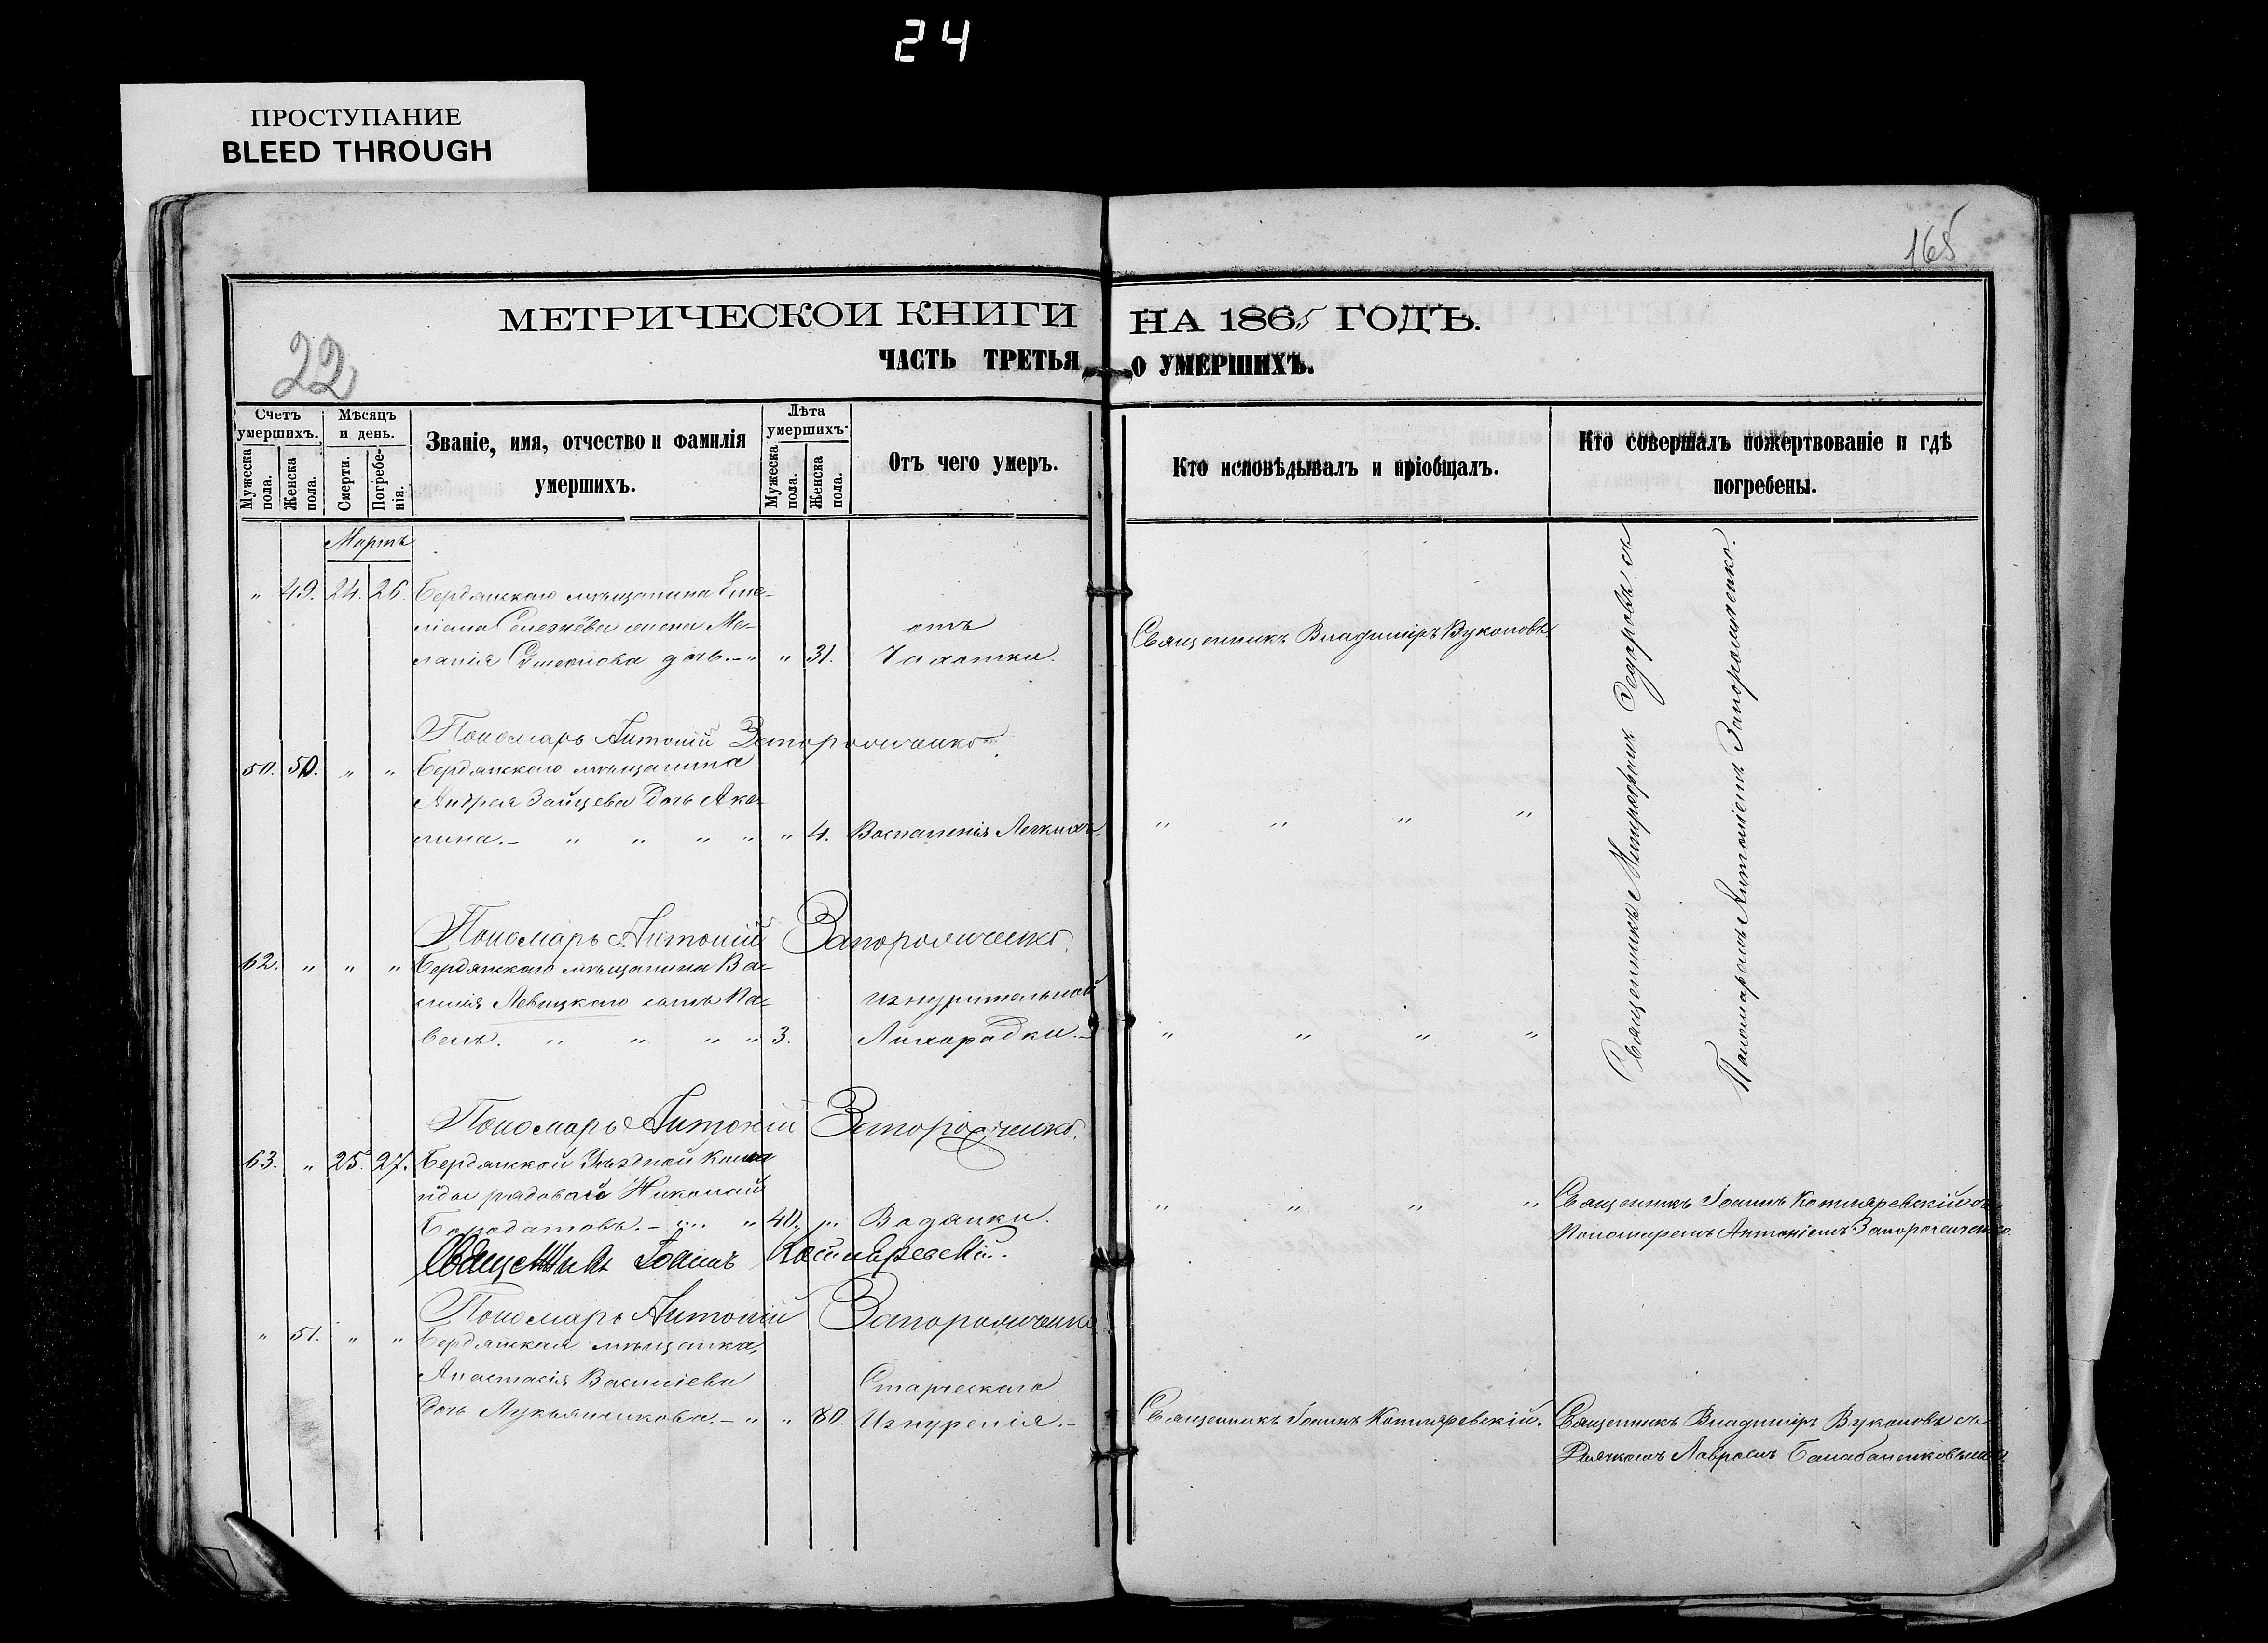 24
ПРОСТУПАНИЕ
BLEED THROUGH
165
22
МЕТРИЧЕСКОЙ КНИГИ НА 1865 ГОДЪ.
ЧАСТЬ ТРЕТЬЯ О УМЕРШИХЪ.
Счетъ умершихъ.
Мужеска пола.
Женска пола.
Мѣсяцъ и день.
Смерти.
Погребенія.
Званіе, имя, отчество и фамилія умершихъ.
Лѣта умершихъ.
Мужеска пола.
Женска пола.
Отъ чего умеръ.
Кто исповѣдывалъ и пріобщалъ.
Кто совершалъ пожертвованіе и гдѣ погребены.
Мартъ
" 49. 24. 26. Бердянскаго мѣщанина Еме-
ліана Селезнёва жена Ме- отъ Священникъ Владиміръ Вуколовъ
ланія Симеонова дочь. – " " 31. Чахотки.
Священникъ Митрофанъ Федоровъ съ
Пономаремъ Антоніемъ Запорожченко.
Пономарь Антоній Запорожченко.
50. 50. " " Бердянскаго мѣщанина
Андрея Зайцева дочь Аку-
лина. – " " " " " 4. Воспаленія Легкихъ. " " " "
Пономарь Антоній Запорожченко.
62. " " " Бердянскаго мѣщанина Ва-
силія Левицкаго сынъ Па- изнурительной
велъ. " " " " 3. Лихорадки. – " " " "
Пономарь Антоній Запорожченко.
63. " 25. 27. Бердянской Уѣздной Коман
нды рядовой Николай Священникъ Іоаннъ Котляревскій съ
Бородатовъ. – " " 40. " Водянки. " " " " Пономаремъ Антоніемъ Запорожченко.
Священникъ Іоаннъ Котляревскій.
Пономарь Антоній Запорожченко
" 51. " " Бердянская мѣщанка,
Анастасія Василіева Старческаго
дочь Лукьянчикова. – " " 80. Изнуренія. – Священникъ Іоаннъ Котляревскій. Священникъ Владиміръ Вуколовъ съ
Дьячкомъ Лавромъ Балабаненковымъ